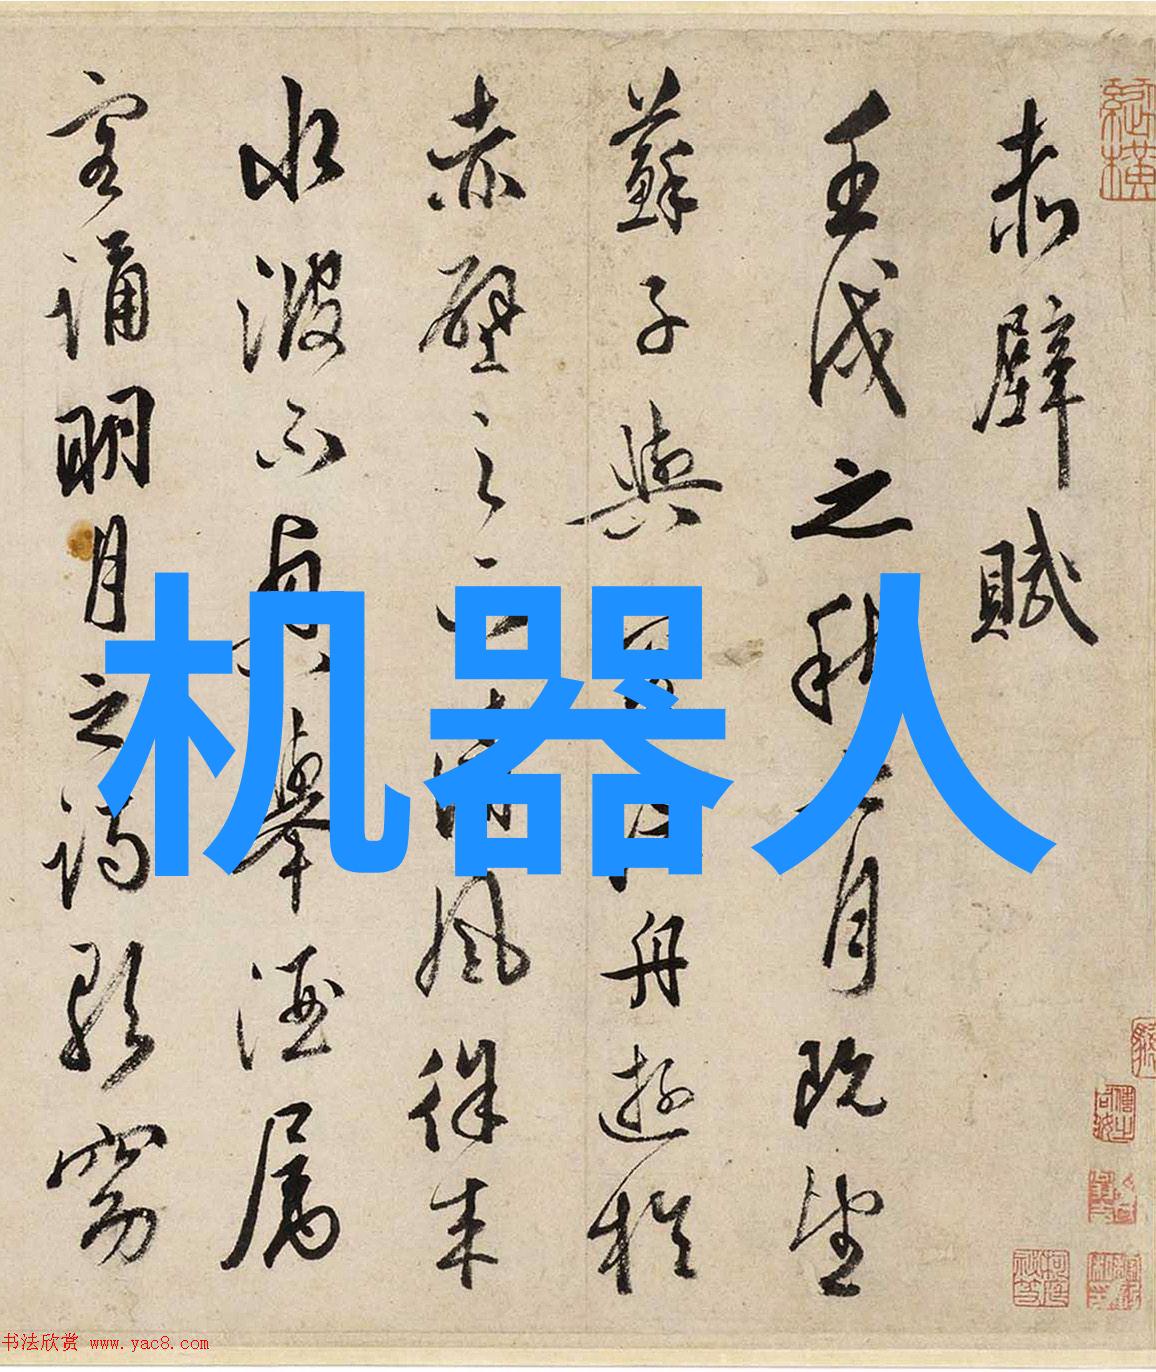 赤壁賦
壬戌之秋七月既望
蘇子與舟遊於
赤壁之下清風徐来
水波不興舉酒属
客誦明月之詩歌窈
机器人
书法欣赏 www.yac8.com